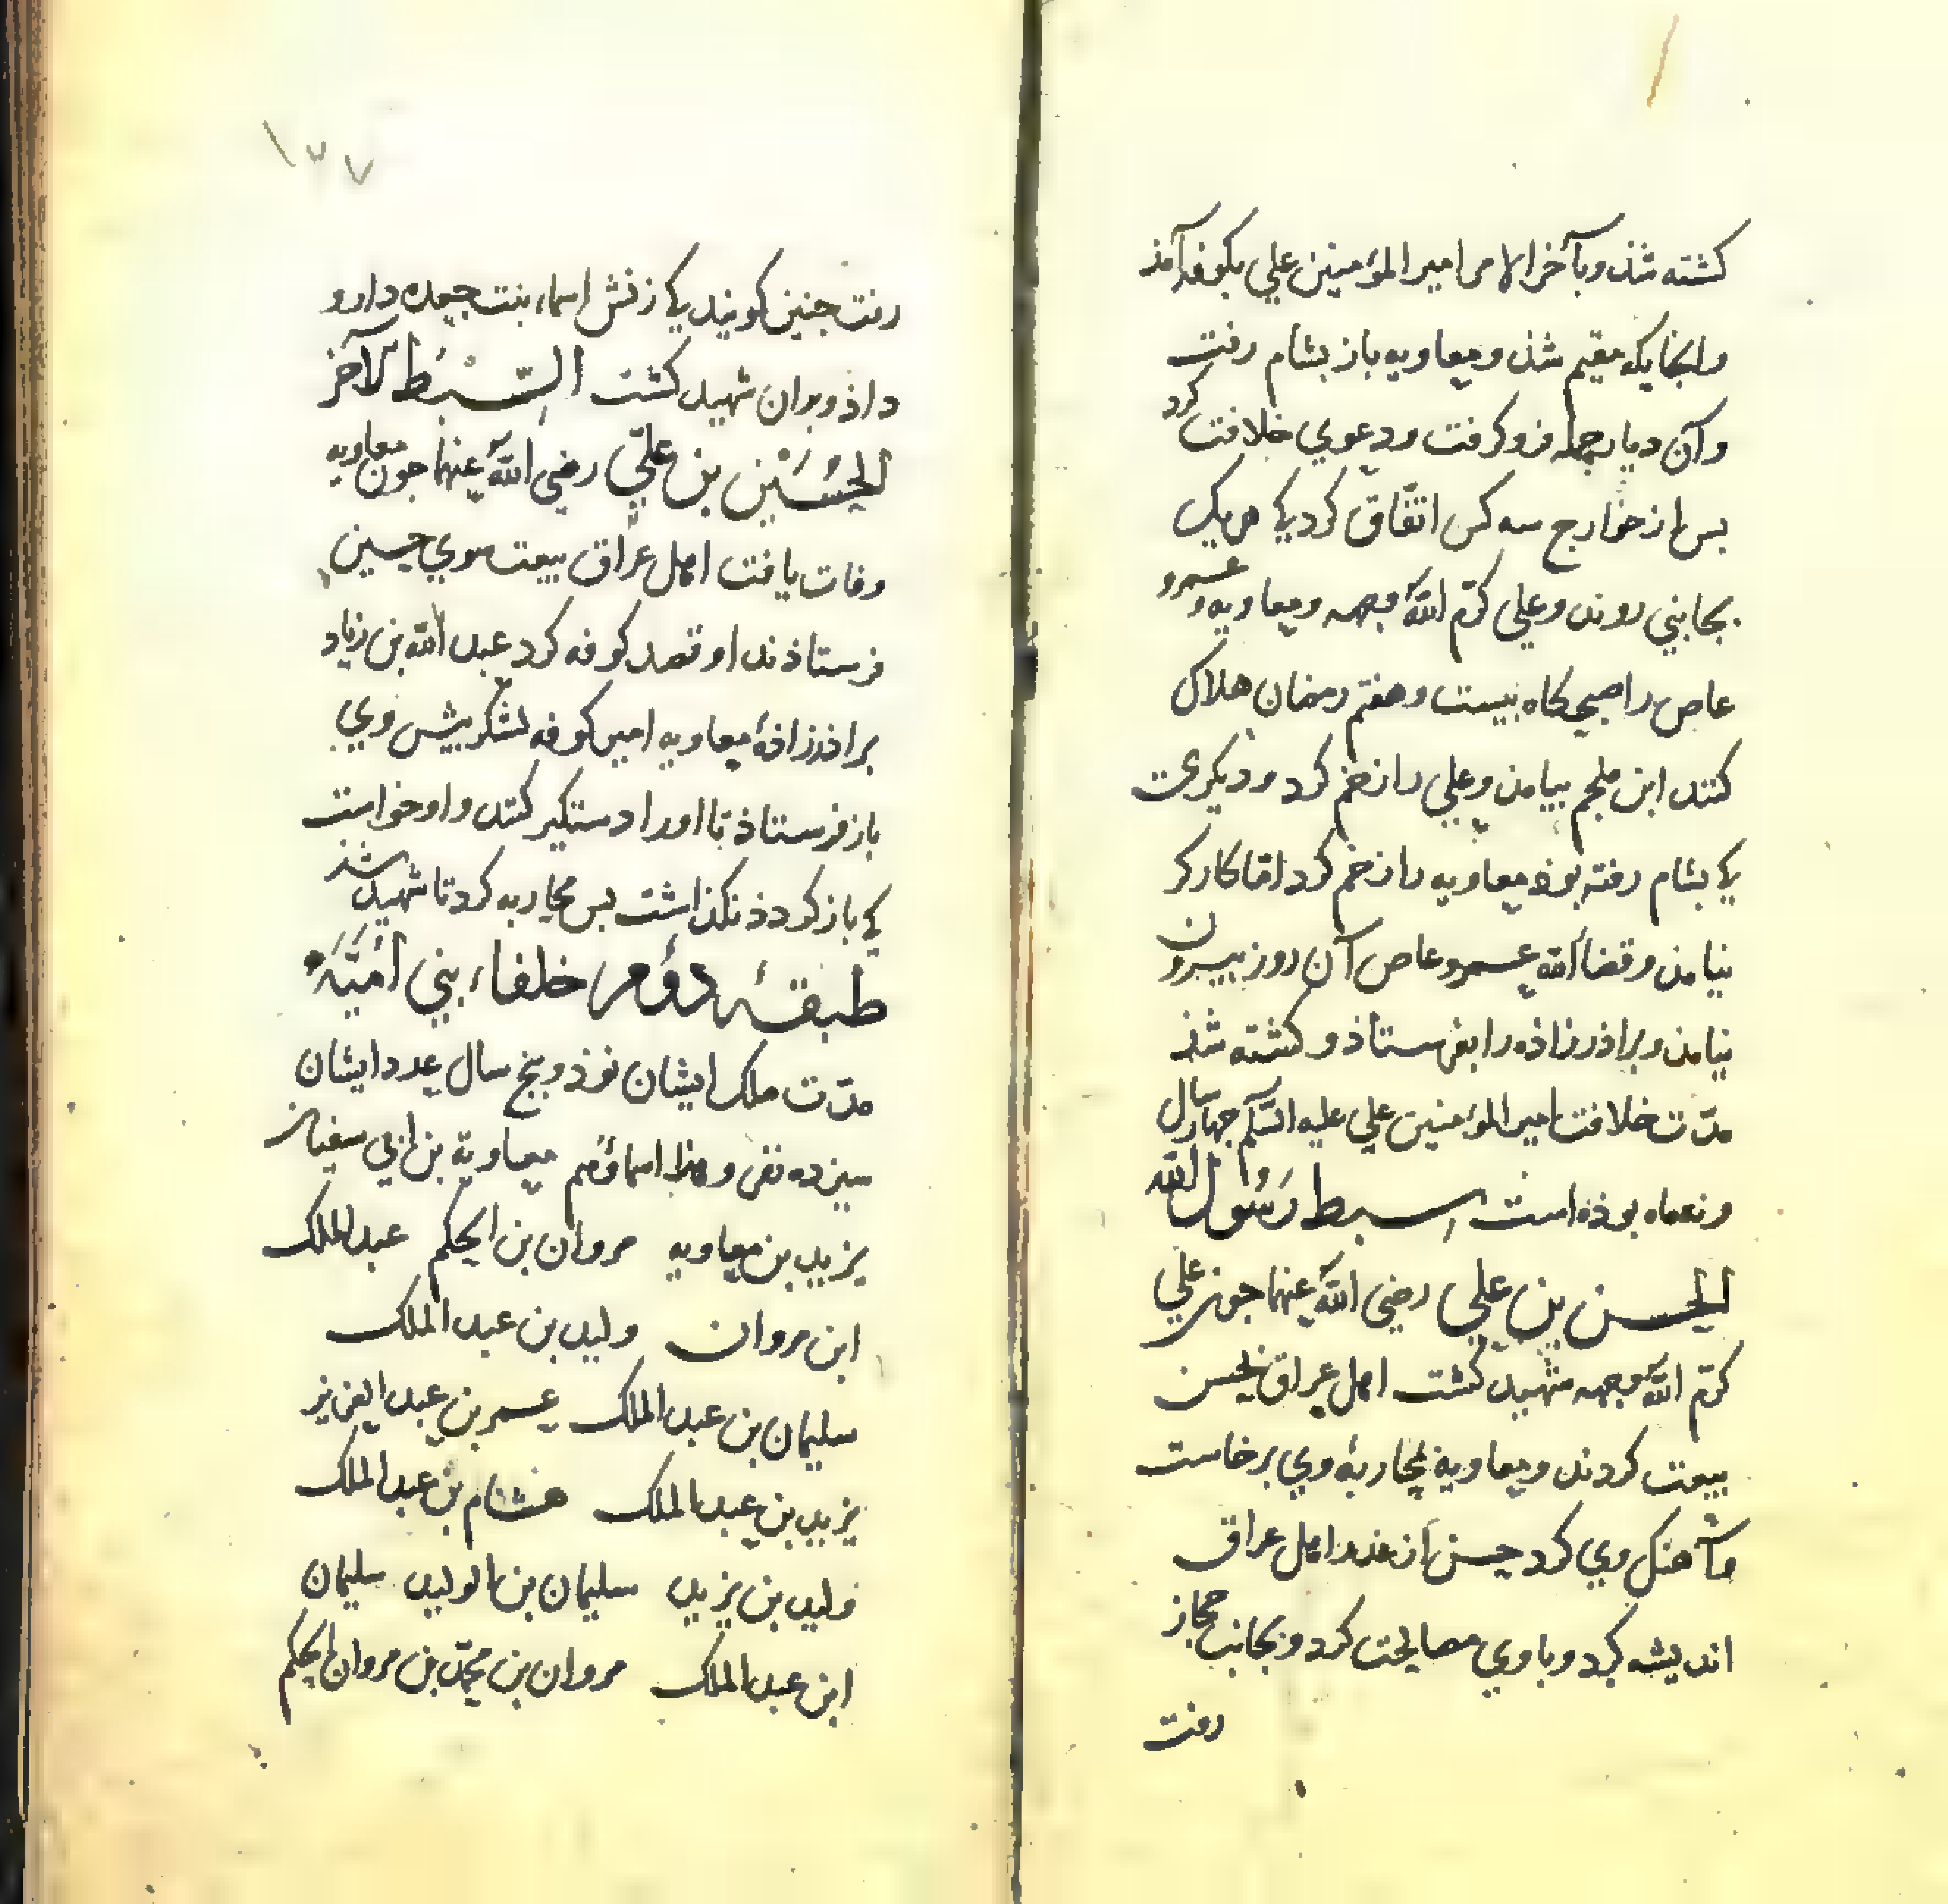 کشته شذ وبآخر الامر امیر المؤمنین علي بکوفه آمذ
وانجایکه مقیم شذ ومعاویه باز بشام رفت
وآن دیار بجمله فرو کرفت ودعوي خلافت کرد
بس از خوارج سه کس اتفّاق کرد کی هر یک
بجانبي روند وعلي کرّم اللّه وجهه ومعاویه وعمرو
عاص را صبحکاه بیست وهفتم رمضان هلاک
کنند ابن ملجم بیامذ وعلي را زخم کرد ودیکري
کی بشام رفته بوذ معاویه را زخم کرد امّا کارکر
نیامذ وقضاء اللّه عمرو عاص آن روز بیرون
نیامذ وبراذر زاذه را بفرستاذ وکشته شذ
مدّت خلافت امیر المؤمنین علي علیه السّلم جهار سال
ونه ماه بوذه است سبط رَسُول اللّه
الحسن بن علي رضي اللّه عنهما جون علي
کرّم اللّه وجهه شهید کشت اهل عراق بحسن
بیعت کردند ومعاویه بمحاربهٔ وي برخاست
وآهنک وي کرد حسن از غدر اهل عراق
اندیشه کرد وبا وي مصالحت کرد وبجانب حجاز
رفت
۱۳۷
رفت جنین کویند کی زنش اسماء بنت جعده دارو
داذ وبدان شهید کشت السّبْط الآخر
الحُسَیْن بن عليّ رضي اللّه عنهما جون معاویه
وفات یافت اهل عراق بیعت سوي حسین
فرستاذند او قصد کوفه کرد عبد اللّه بن زیاد
براذرزاذهٔ معاویه امیر کوفه لشکر بیش وي
باز فرستاذ تا اورا دستکیر کنند واو خواست
کی باز کردذ نکذاشت بس محاربه کرد تا شهید شذ
طبقهٔ دوُم خلفاء بني اُمیَّه
مدّت ملک ایشان نوذ وبنج سال عدد ایشان
سیزده نفر وهذا اسماؤهم معاویة بن ابي سفیان
یزید بن معاویه مروان بن الحکم عبد الملک
ابن مروان ولید بن عبد الملک
سلیمان بن عبد الملک عمر بن عبد العزیز
یزید بن عبد الملک هشام بن عبد الملک
ولید بن یزید سلیمان بن الولید سلیمان
ابن عبد الملک مروان بن محمّد بن مروان الحکم